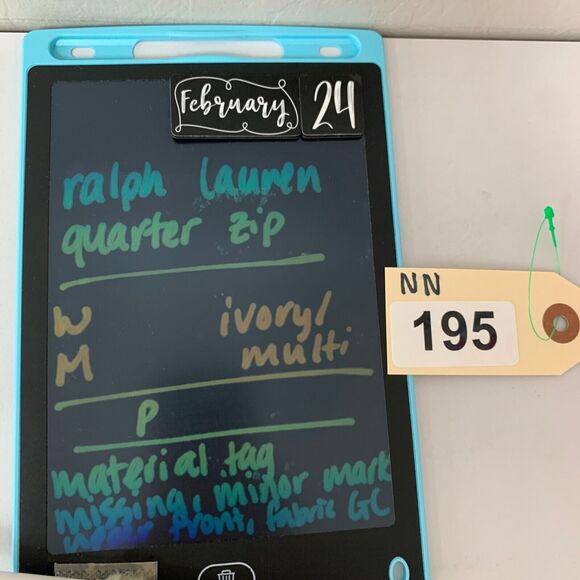 February 24
ralph lauren
quarter zip
W ivory/
M multi
P
material tag
missing, minor mark
front, fabric GC
NN
195